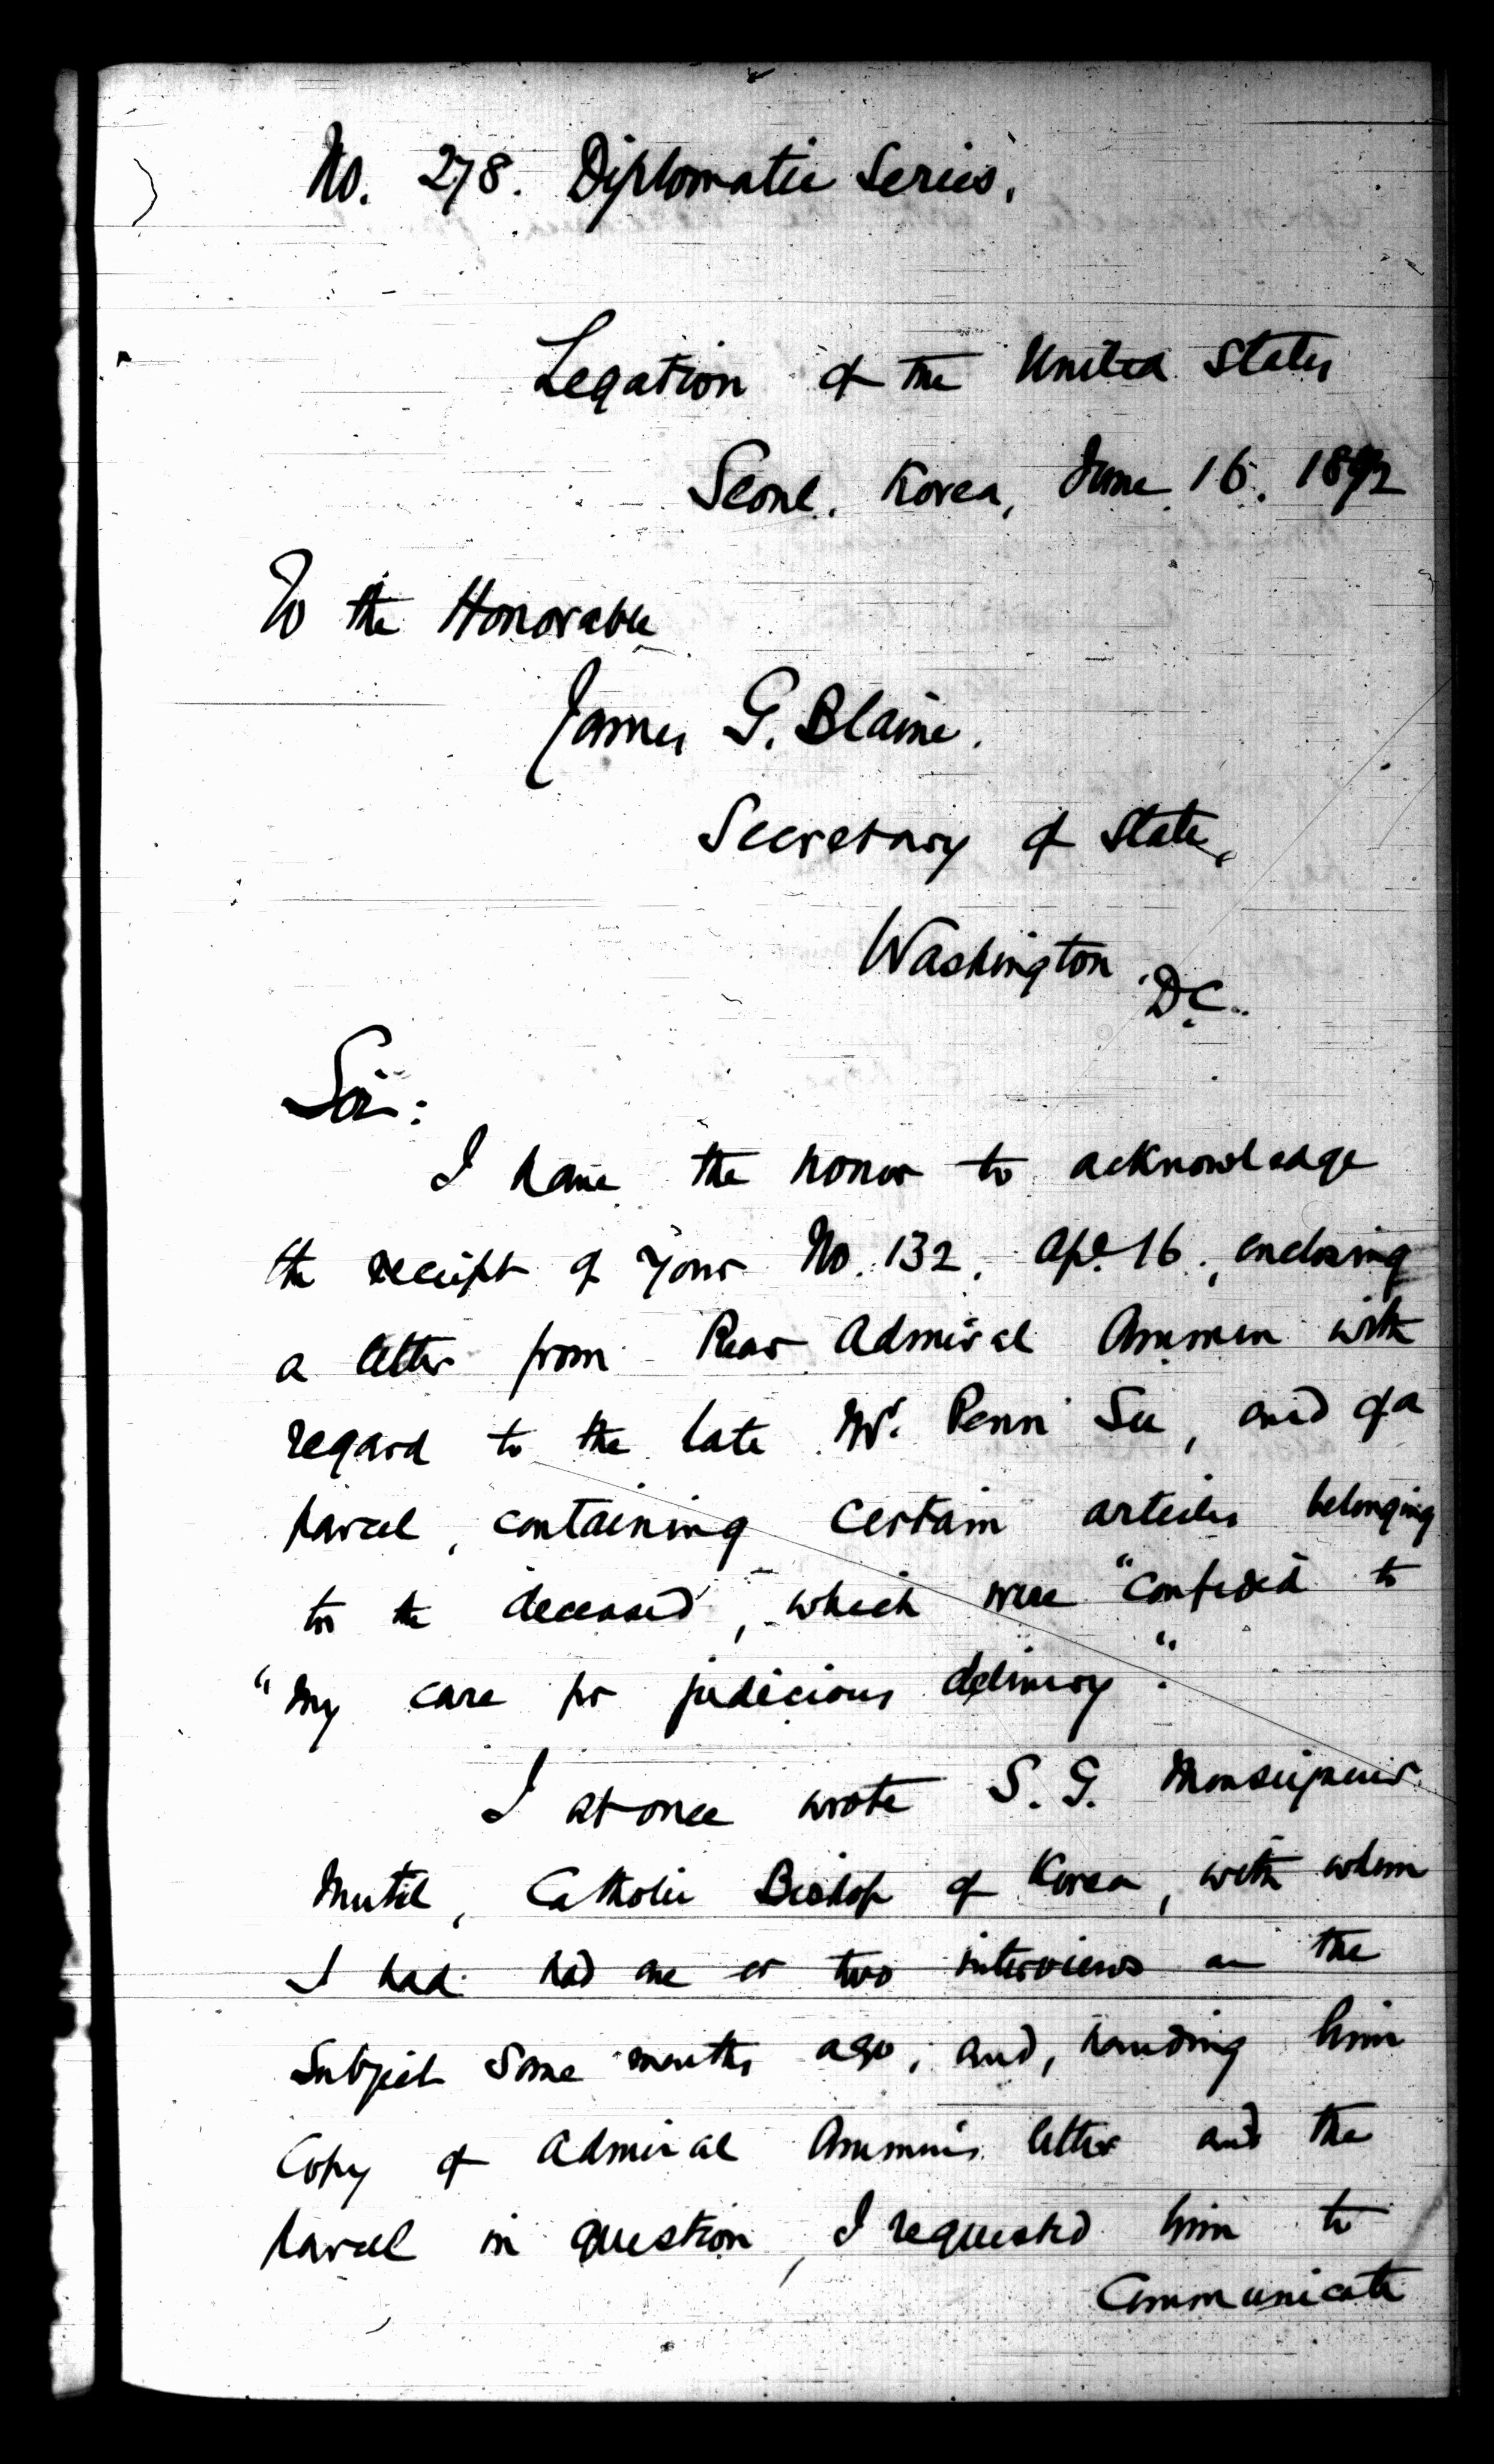 No. 278. Diplomatic Series.
Legation of the United States
Seoul. Korea, June 16. 1892
To the Honorable
James G. Blaine.
Secretary of State,
Washington, D.C.
Sir:
I have the honor to acknowledge
the receipt of your No. 132, Apl. 16, enclosing
a letter from Rear Admiral Ammen with
regard to the late Mr. Penn Su, and of a
parcel, containing certain articles belonging
to the deceased, which were "confided to
"my care for judicious delivery".
I at once wrote S. G. Monseigneur
Mutel, Catholic Bishop of Korea, with whom
I had had one or two interviews on the
subject some months ago; and, handing him
copy of Admiral Ammen's letter and the
parcel in question, I requested him to
communicate